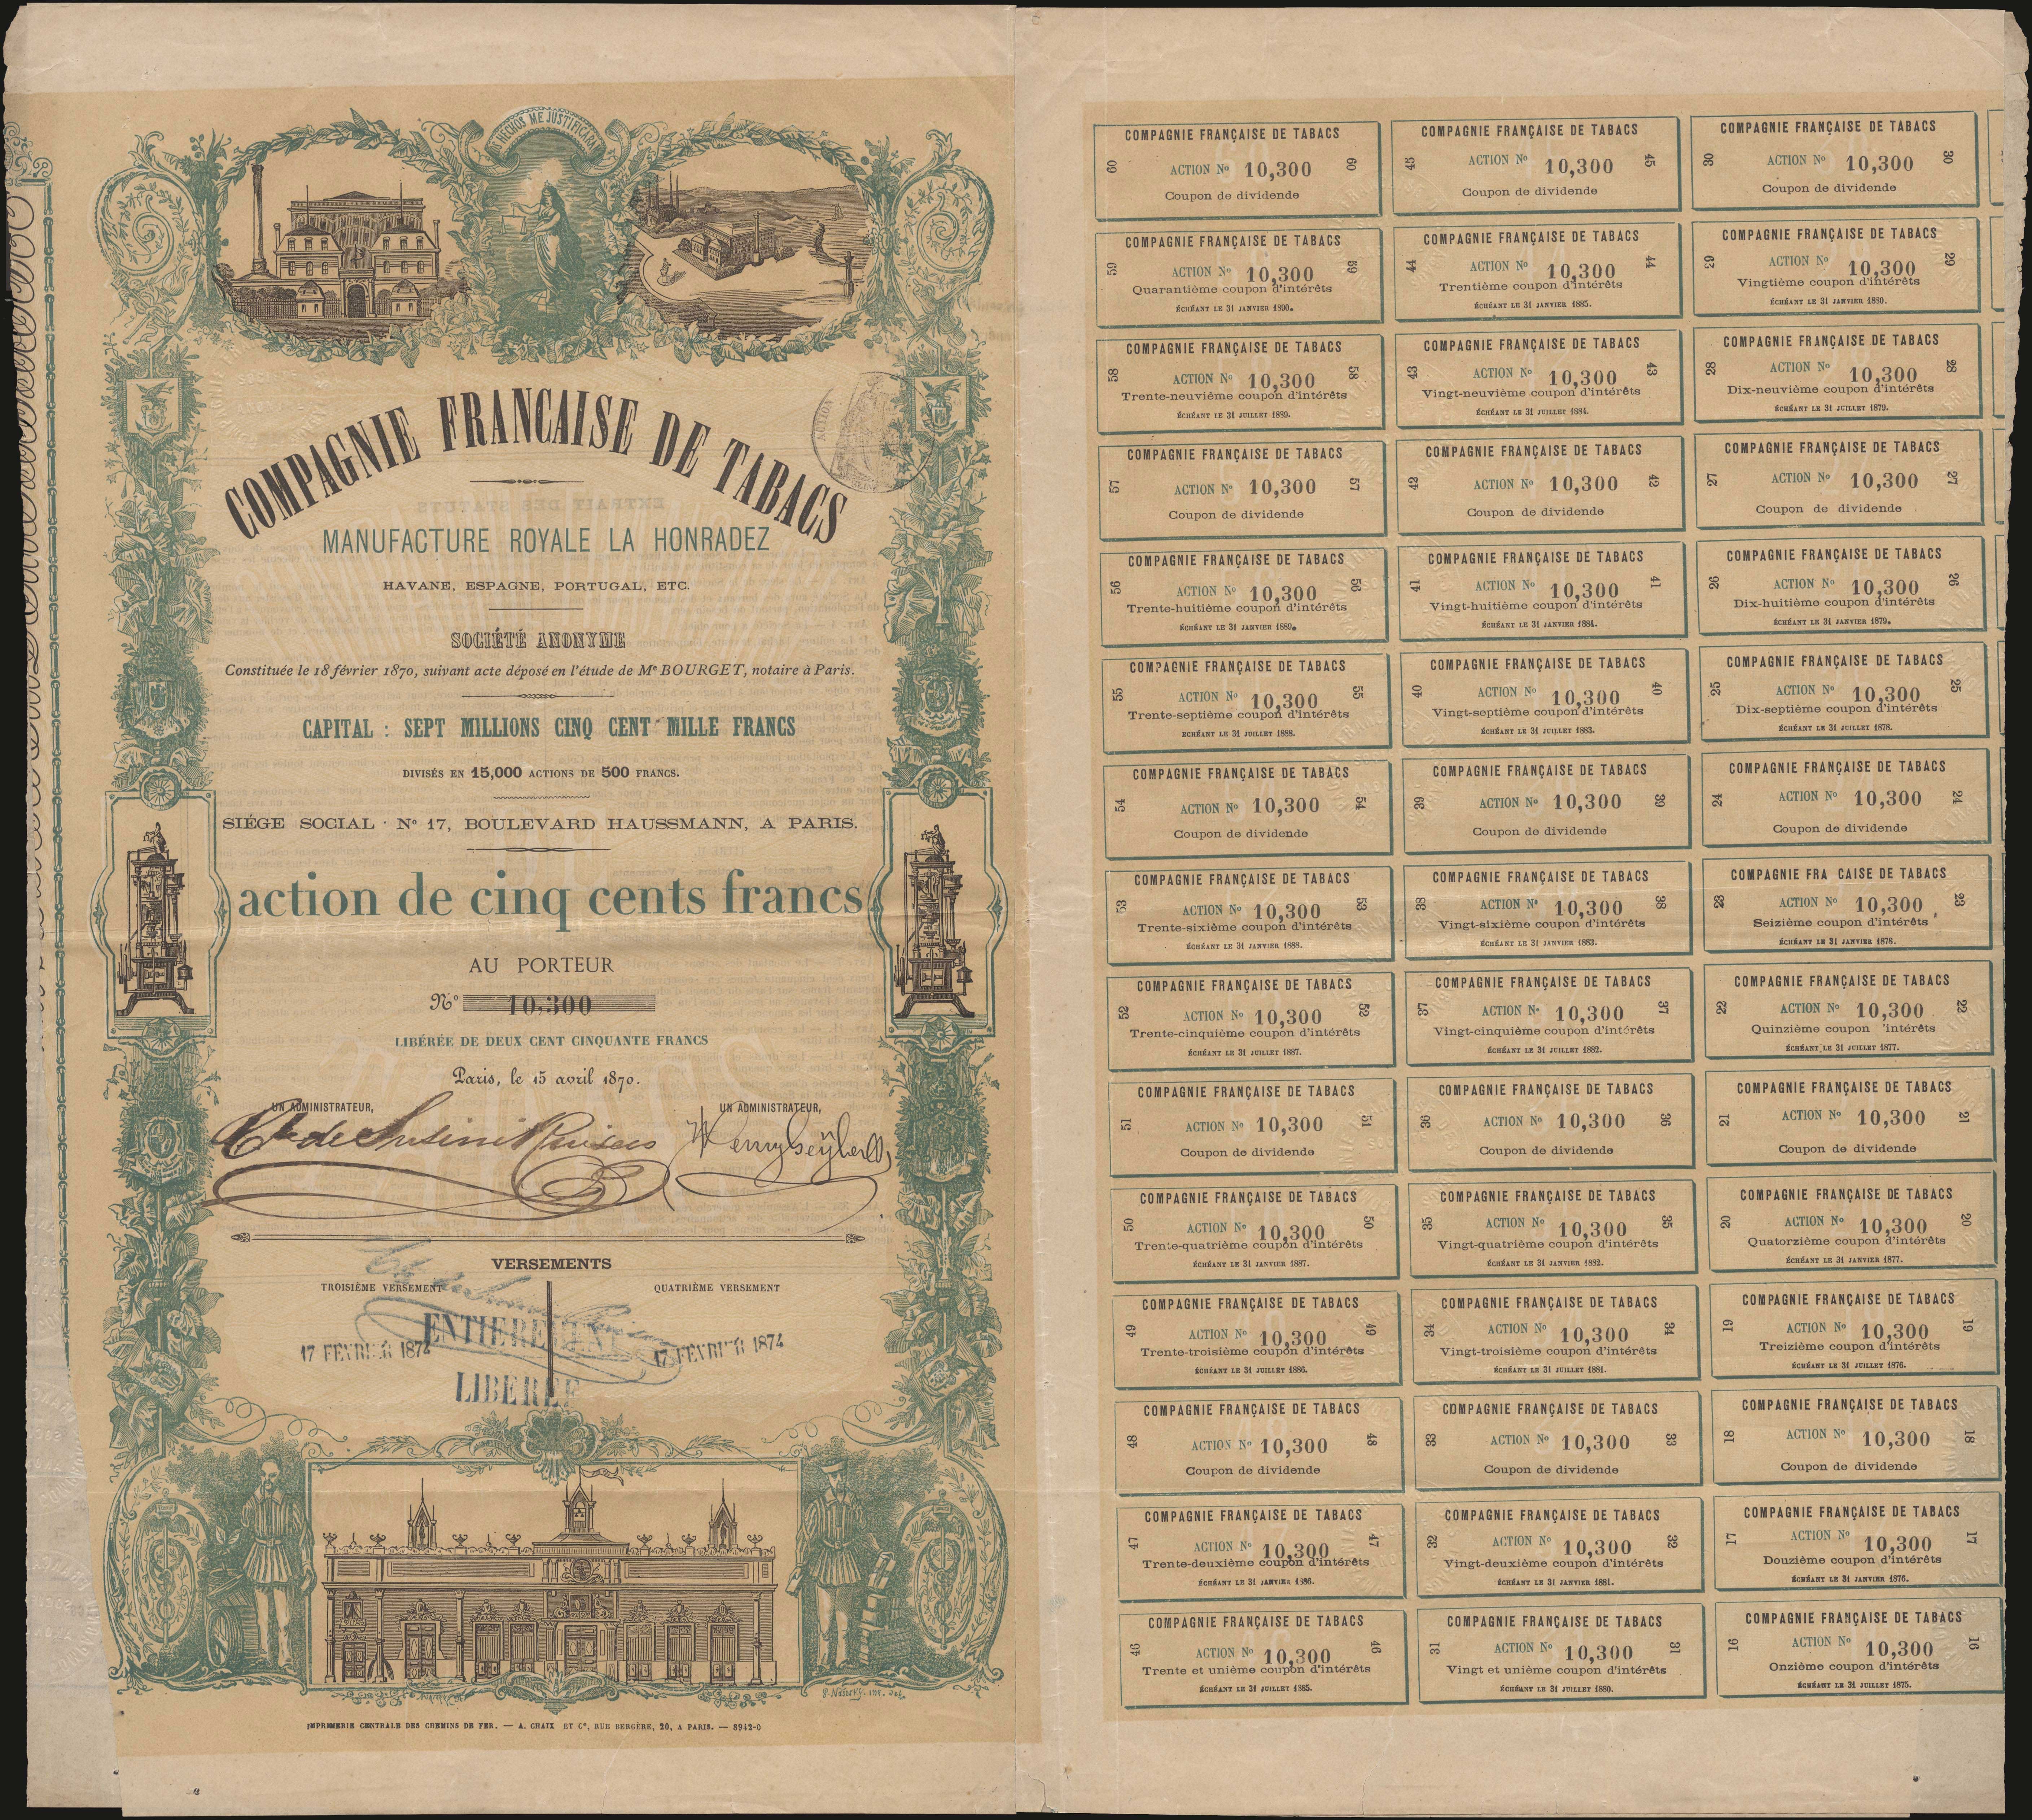 HECHOS ME JUSTIFICARAN
COMPAGNIE FRANCAISE DE TABACS
ACTION
MANUFACTURE ROYALE LA HONRADEZ
HAVANE, ESPAGNE, PORTUGAL, ETC.
SOCIÉTÉ ANONYME
Constituée le 18 février 1870, suivant acte déposé en l'étude de Me BOURGET, notaire à Paris.
CAPITAL : SEPT MILLIONS CINQ CENT MILLE FRANCS
DIVISÉS EN 15,000 ACTIONS DE 500 FRANCS.
SIÉGE SOCIAL · No 17, BOULEVARD HAUSSMANN, A PARIS.
action de cinq cents francs
AU PORTEUR
No 10,300
LIBÉRÉE DE DEUX CENT CINQUANTE FRANCS
Paris, le 15 avril 1870.
UN ADMINISTRATEUR, UN ADMINISTRATEUR,
VERSEMENTS
TROISIÈME VERSEMENT QUATRIÈME VERSEMENT
ENTIEREMENT
17 FEVRIER 1874 17 FEVRIER 1874
LIBEREE
IMPRIMERIE CENTRALE DES CHEMINS DE FER. — A. CHAIX ET Ce, RUE BERGÈRE, 20, A PARIS. — 8942-0
COMPAGNIE FRANÇAISE DE TABACS
60 ACTION No 10,300 60
Coupon de dividende
COMPAGNIE FRANÇAISE DE TABACS
59 ACTION No 10,300 59
Quarantième coupon d'intérêts
ÉCHÉANT LE 31 JANVIER 1890.
COMPAGNIE FRANÇAISE DE TABACS
58 ACTION No 10,300 58
Trente-neuvième coupon d'intérêts
ÉCHÉANT LE 31 JUILLET 1889.
COMPAGNIE FRANÇAISE DE TABACS
57 ACTION No 10,300 57
Coupon de dividende
COMPAGNIE FRANÇAISE DE TABACS
56 ACTION No 10,300 56
Trente-huitième coupon d'intérêts
ÉCHÉANT LE 31 JANVIER 1889.
COMPAGNIE FRANÇAISE DE TABACS
55 ACTION No 10,300 55
Trente-septième coupon d'intérêts
ÉCHÉANT LE 31 JUILLET 1888.
COMPAGNIE FRANÇAISE DE TABACS
54 ACTION No 10,300 54
Coupon de dividende
COMPAGNIE FRANÇAISE DE TABACS
53 ACTION No 10,300 53
Trente-sixième coupon d'intérêts
ÉCHÉANT LE 31 JANVIER 1888.
COMPAGNIE FRANÇAISE DE TABACS
52 ACTION No 10,300 52
Trente-cinquième coupon d'intérêts
ÉCHÉANT LE 31 JUILLET 1887.
COMPAGNIE FRANÇAISE DE TABACS
51 ACTION No 10,300 51
Coupon de dividende
COMPAGNIE FRANÇAISE DE TABACS
50 ACTION No 10,300 50
Trente-quatrième coupon d'intérêts
ÉCHÉANT LE 31 JANVIER 1887.
COMPAGNIE FRANÇAISE DE TABACS
49 ACTION No 10,300 49
Trente-troisième coupon d'intérêts
ÉCHÉANT LE 31 JUILLET 1886.
COMPAGNIE FRANÇAISE DE TABACS
48 ACTION No 10,300 48
Coupon de dividende
COMPAGNIE FRANÇAISE DE TABACS
47 ACTION No 10,300 47
Trente-deuxième coupon d'intérêts
ÉCHÉANT LE 31 JANVIER 1886.
COMPAGNIE FRANÇAISE DE TABACS
46 ACTION No 10,300 46
Trente et unième coupon d'intérêts
ÉCHÉANT LE 31 JUILLET 1885.
COMPAGNIE FRANÇAISE DE TABACS
45 ACTION No 10,300 45
Coupon de dividende
COMPAGNIE FRANÇAISE DE TABACS
44 ACTION No 10,300 44
Trentième coupon d'intérêts
ÉCHÉANT LE 31 JANVIER 1885.
COMPAGNIE FRANÇAISE DE TABACS
43 ACTION No 10,300 43
Vingt-neuvième coupon d'intérêts
ÉCHÉANT LE 31 JUILLET 1884.
COMPAGNIE FRANÇAISE DE TABACS
42 ACTION No 10,300 42
Coupon de dividende
COMPAGNIE FRANÇAISE DE TABACS
41 ACTION No 10,300 41
Vingt-huitième coupon d'intérêts
ÉCHÉANT LE 31 JANVIER 1884.
COMPAGNIE FRANÇAISE DE TABACS
40 ACTION No 10,300 40
Vingt-septième coupon d'intérêts
ÉCHÉANT LE 31 JUILLET 1883.
COMPAGNIE FRANÇAISE DE TABACS
39 ACTION No 10,300 39
Coupon de dividende
COMPAGNIE FRANÇAISE DE TABACS
38 ACTION No 10,300 38
Vingt-sixième coupon d'intérêts
ÉCHÉANT LE 31 JANVIER 1883.
COMPAGNIE FRANÇAISE DE TABACS
37 ACTION No 10,300 37
Vingt-cinquième coupon d'intérêts
ÉCHÉANT LE 31 JUILLET 1882.
COMPAGNIE FRANÇAISE DE TABACS
36 ACTION No 10,300 36
Coupon de dividende
COMPAGNIE FRANÇAISE DE TABACS
35 ACTION No 10,300 35
Vingt-quatrième coupon d'intérêts
ÉCHÉANT LE 31 JANVIER 1882.
COMPAGNIE FRANÇAISE DE TABACS
34 ACTION No 10,300 34
Vingt-troisième coupon d'intérêts
ÉCHÉANT LE 31 JUILLET 1881.
COMPAGNIE FRANÇAISE DE TABACS
33 ACTION No 10,300 33
Coupon de dividende
COMPAGNIE FRANÇAISE DE TABACS
32 ACTION No 10,300 32
Vingt-deuxième coupon d'intérêts
ÉCHÉANT LE 31 JANVIER 1881.
COMPAGNIE FRANÇAISE DE TABACS
31 ACTION No 10,300 31
Vingt et unième coupon d'intérêts
ÉCHÉANT LE 31 JUILLET 1880.
COMPAGNIE FRANÇAISE DE TABACS
30 ACTION No 10,300 30
Coupon de dividende
COMPAGNIE FRANÇAISE DE TABACS
29 ACTION No 10,300 29
Vingtième coupon d'intérêts
ÉCHÉANT LE 31 JANVIER 1880.
COMPAGNIE FRANÇAISE DE TABACS
28 ACTION No 10,300 28
Dix-neuvième coupon d'intérêts
ÉCHÉANT LE 31 JUILLET 1879.
COMPAGNIE FRANÇAISE DE TABACS
27 ACTION No 10,300 27
Coupon de dividende
COMPAGNIE FRANÇAISE DE TABACS
26 ACTION No 10,300 26
Dix-huitième coupon d'intérêts
ÉCHÉANT LE 31 JANVIER 1879.
COMPAGNIE FRANÇAISE DE TABACS
25 ACTION No 10,300 25
Dix-septième coupon d'intérêts
ÉCHÉANT LE 31 JUILLET 1878.
COMPAGNIE FRANÇAISE DE TABACS
24 ACTION No 10,300 24
Coupon de dividende
COMPAGNIE FRA CAISE DE TABACS
23 ACTION No 10,300 23
Seizième coupon d'intérêts
ÉCHÉANT LE 31 JANVIER 1878.
COMPAGNIE FRANÇAISE DE TABACS
22 ACTION No 10,300 22
Quinzième coupon 'intérêts
ÉCHÉANT LE 31 JUILLET 1877.
COMPAGNIE FRANÇAISE DE TABACS
21 ACTION No 10,300 21
Coupon de dividende
COMPAGNIE FRANÇAISE DE TABACS
20 ACTION No 10,300 20
Quatorzième coupon d'intérêts
ÉCHÉANT LE 31 JANVIER 1877.
COMPAGNIE FRANÇAISE DE TABACS
19 ACTION No 10,300 19
Treizième coupon d'intérêts
ÉCHÉANT LE 31 JUILLET 1876.
COMPAGNIE FRANÇAISE DE TABACS
18 ACTION No 10,300 18
Coupon de dividende
COMPAGNIE FRANÇAISE DE TABACS
17 ACTION No 10,300 17
Douzième coupon d'intérêts
ÉCHÉANT LE 31 JANVIER 1876.
COMPAGNIE FRANÇAISE DE TABACS
16 ACTION No 10,300 16
Onzième coupon d'intérêts
ÉCHÉANT LE 31 JUILLET 1875.